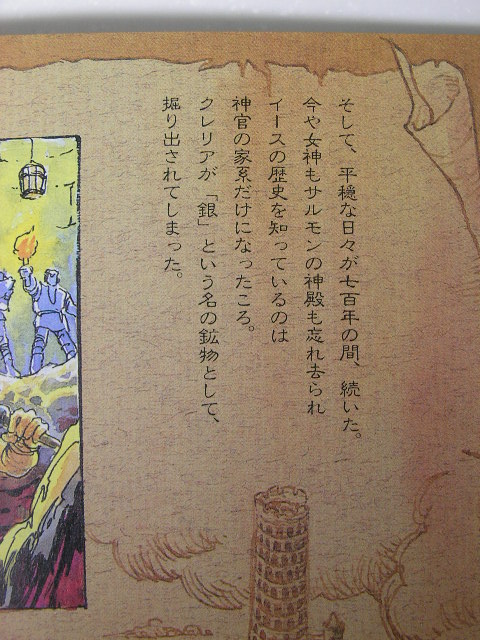 そして、平穏な日々が七百年の間、続いた。
今や女神もサルモンの神殿も忘れ去られ
イースの歴史を知っているのは
神官の家系だけになったころ。
クレリアが「銀」という名の鉱物として、
掘り出されてしまった。